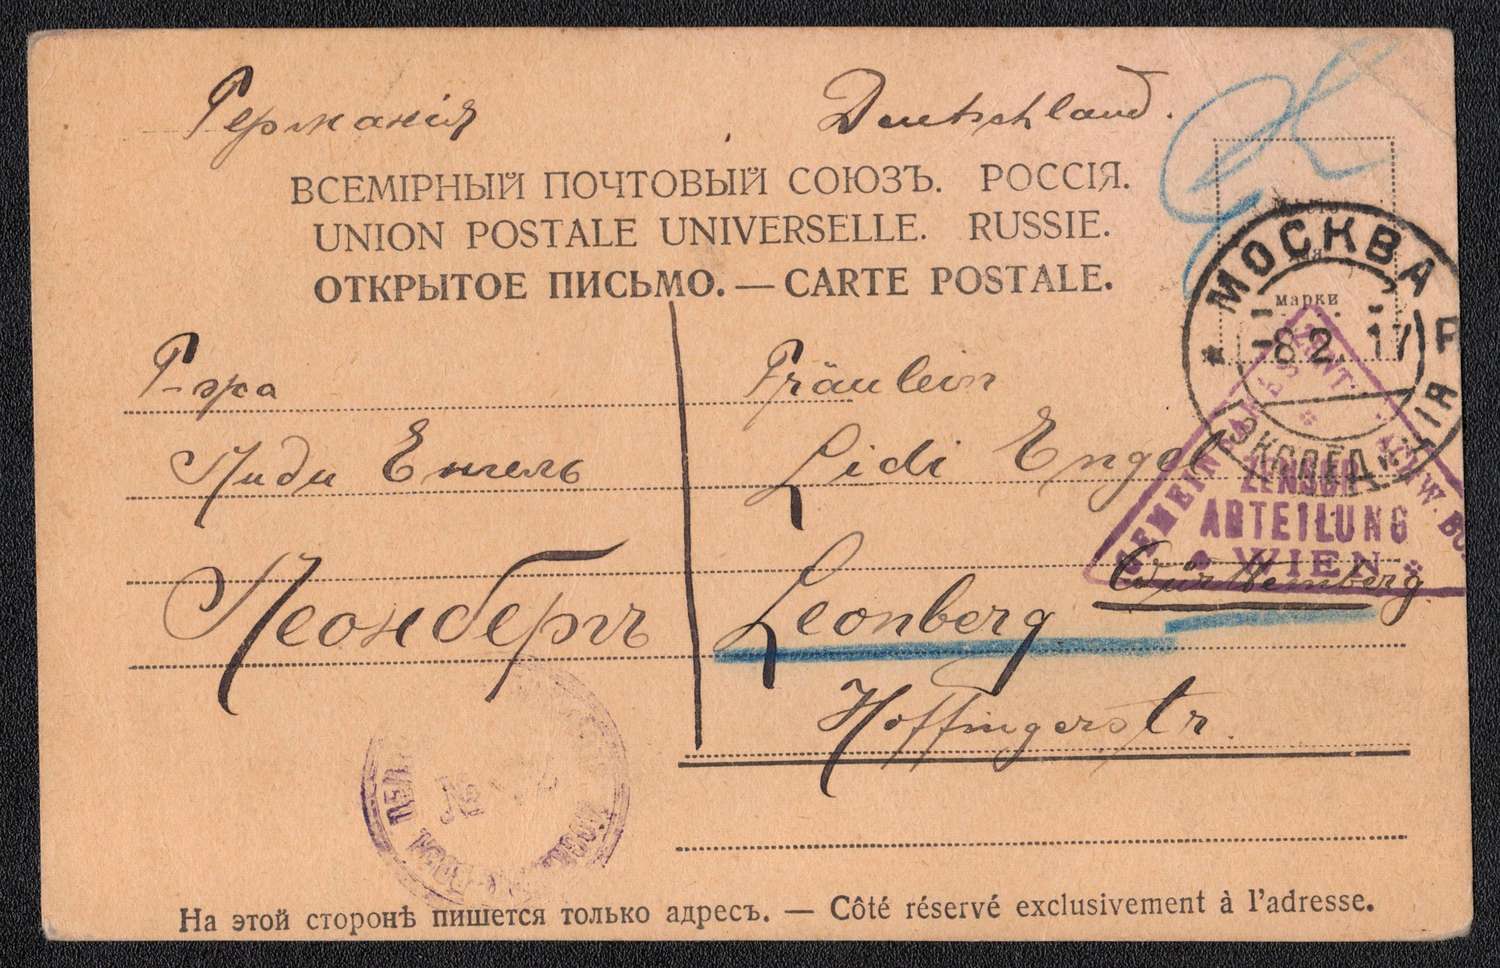 Германія Deutschland.
ВСЕМІРНЫЙ ПОЧТОВЫЙ СОЮЗЪ. РОССІЯ.
UNION POSTALE UNIVERSELLE. RUSSIE.
ОТКРЫТОЕ ПИСЬМО. — CARTE POSTALE.
марки
МОСКВА
8.2.17
Г-жа
Лиди Енгель
Леонбергъ
Fräulein
Lidi Engel
Leonberg
Württemberg.
Hoffingerstr.
ZENSUR
ABTEILUNG
WIEN
На этой сторонѣ пишется только адресъ. — Côté réservé exclusivement à l'adresse.